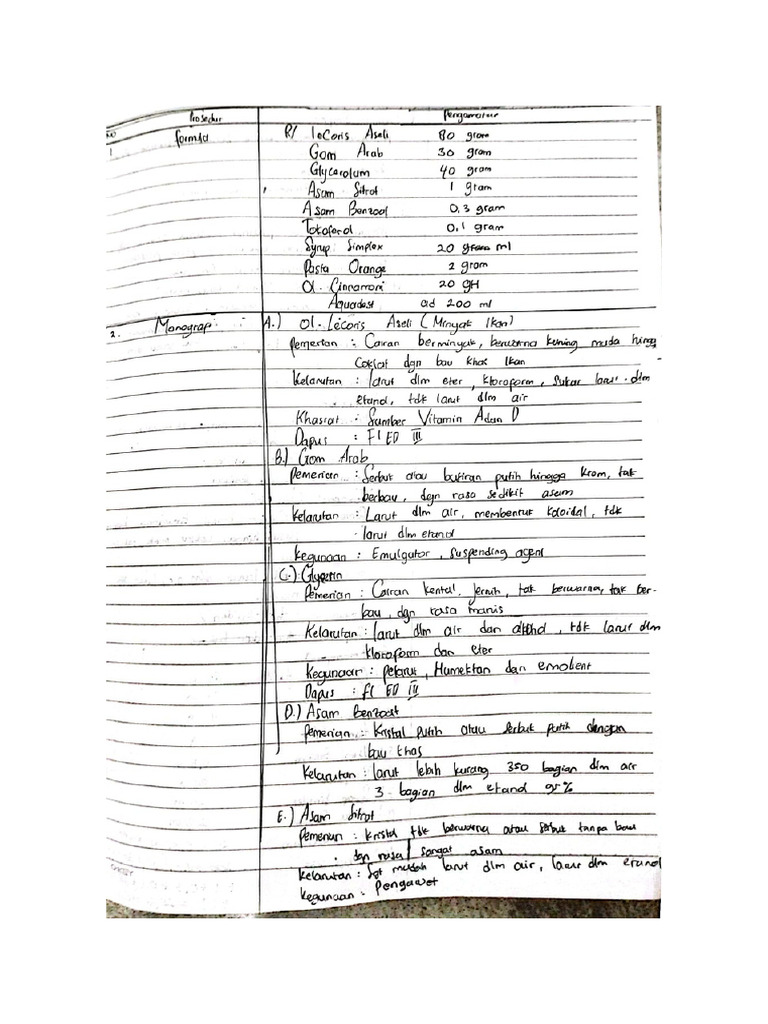 Prosedur Pengamatan
NO
1 formula R/ IoCoris Aseli 80 gram
Gom Arab 30 gram
Glycerolum 40 gram
Asam Sitrat 1 gram
Asam Benzoat 0,3 gram
Tokoferol 0,1 gram
Syrup Simplex 20 gram ml
Pasta Orange 2 gram
Ol. Cinnamomi 20 gtt
Aquadest ad 200 ml
2. Monografi : A.) Ol. Lecoris Aseli (Minyak Ikan)
Pemerian : Cairan berminyak, berwarna kuning muda hingg
Coklat dgn bau khas Ikan
Kelarutan : larut dlm eter, kloroform, Sukar larut dlm
etanol, tdk larut dlm air
Khasiat : Sumber Vitamin A dan D
Dapus : FI ED III
B.) Gom Arab
Pemerian : Serbuk atau butiran putih hingga krem, tak
berbau, dgn rasa sedikit asam
Kelarutan : Larut dlm air, membentuk koloidal, tdk
larut dlm etanol
Kegunaan : Emulgator, Suspending agent
C.) Glyserin
Pemerian : Cairan kental, jernih, tak berwarna, tak ber-
bau, dgn rasa manis
Kelarutan : larut dlm air dan alkohol, tdk larut dlm
kloroform dan eter
Kegunaan : pelarut, Humektan dan emolient
Dapus : FI ED III
D.) Asam Benzoat
Pemerian : Kristal putih atau serbuk putih dengan
bau khas
Kelarutan : larut lebih kurang 350 bagian dlm air
3 bagian dlm etanol 95%
E.) Asam Sitrat
Pemerian : Kristal tdk berwarna atau serbuk tanpa bau
dgn rasa sangat asam
Kelarutan : Sgt mudah larut dlm air, larut dlm etanol
Kegunaan : Pengawet